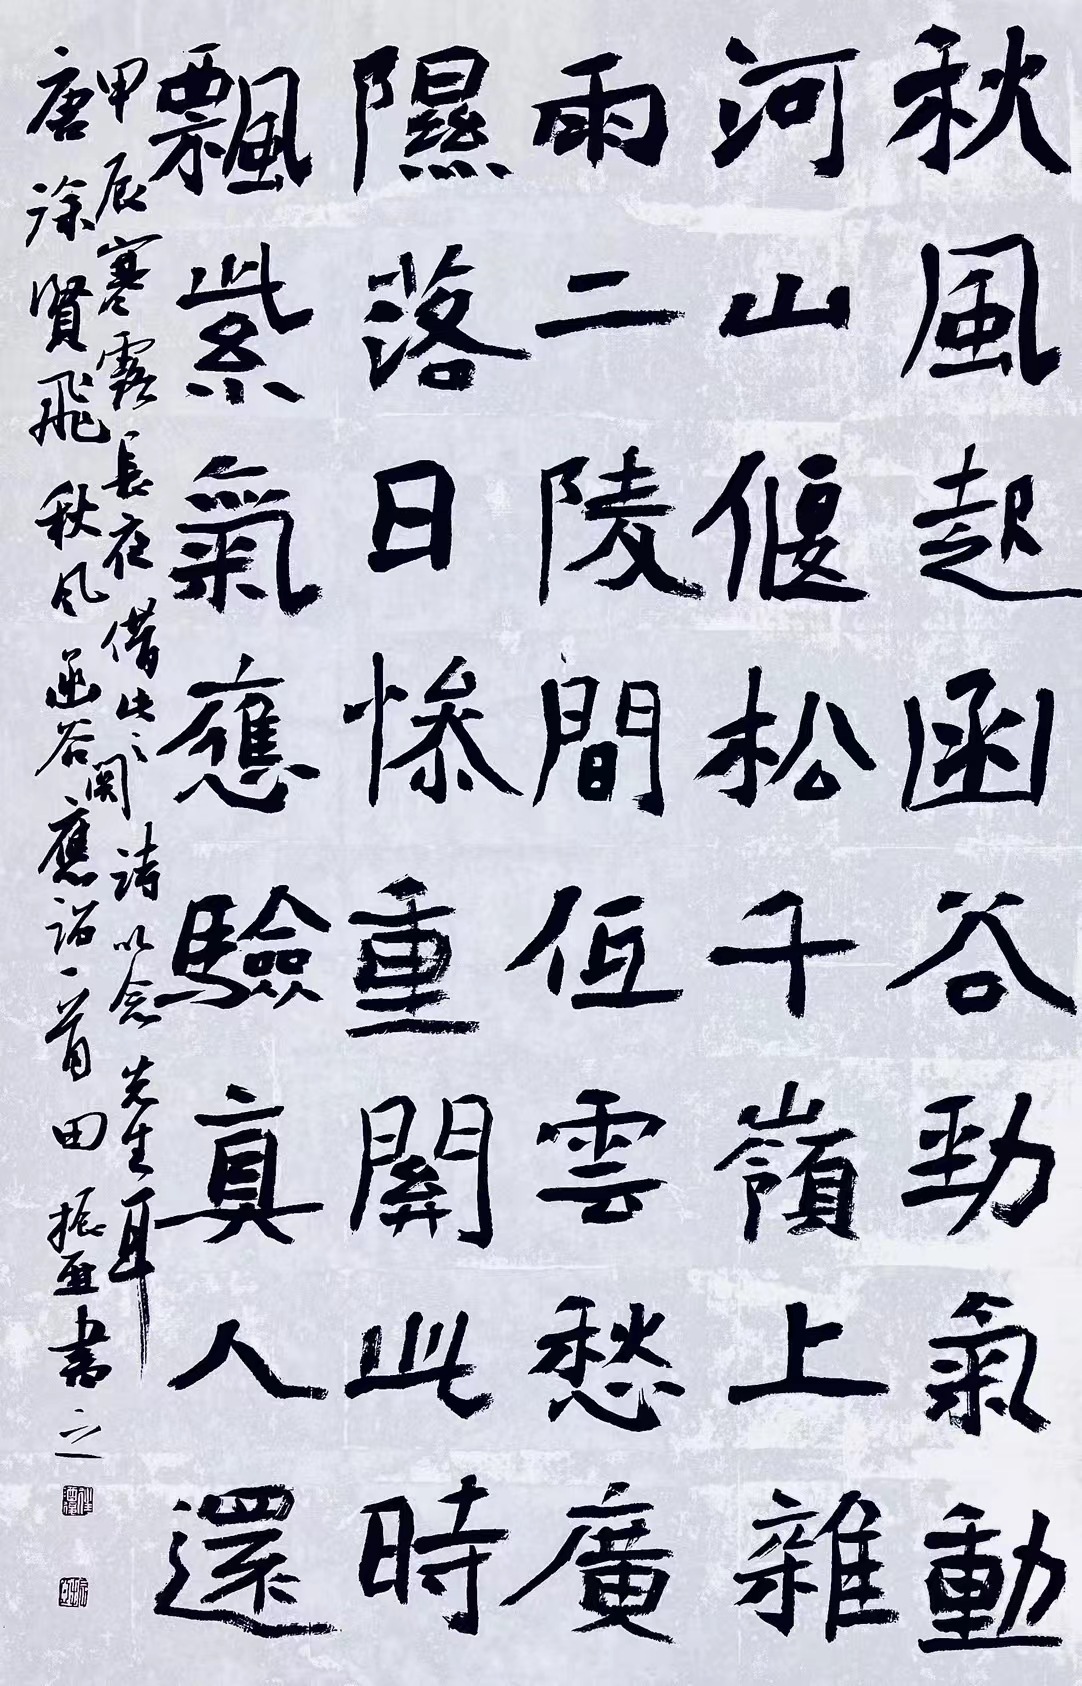 秋風起函谷勁氣動
河山偃松千嶺上雜
雨二陵間低雲愁廣
隰落日慘重關此時
飄紫氣應驗真人還
甲辰寒露長在借此之関詩以念先生耳
唐徐賢飛秋风函谷應詔一首田振亞書之